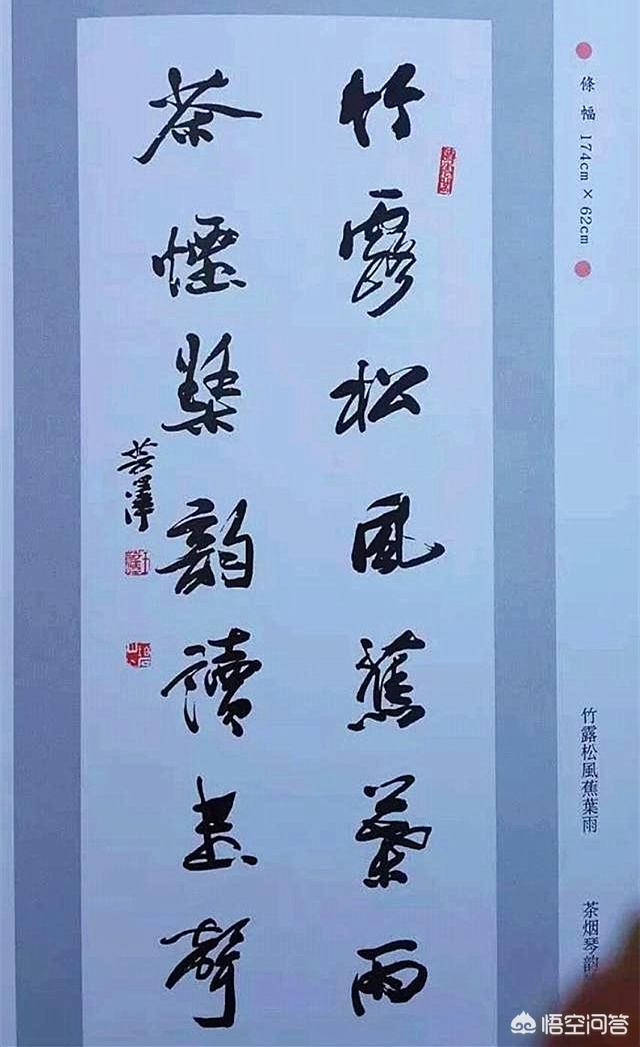 竹露松風蕉葉雨
茶煙琴韵讀書聲
條幅 174cm × 62cm
竹露松風蕉葉雨
茶烟琴韵
悟空问答